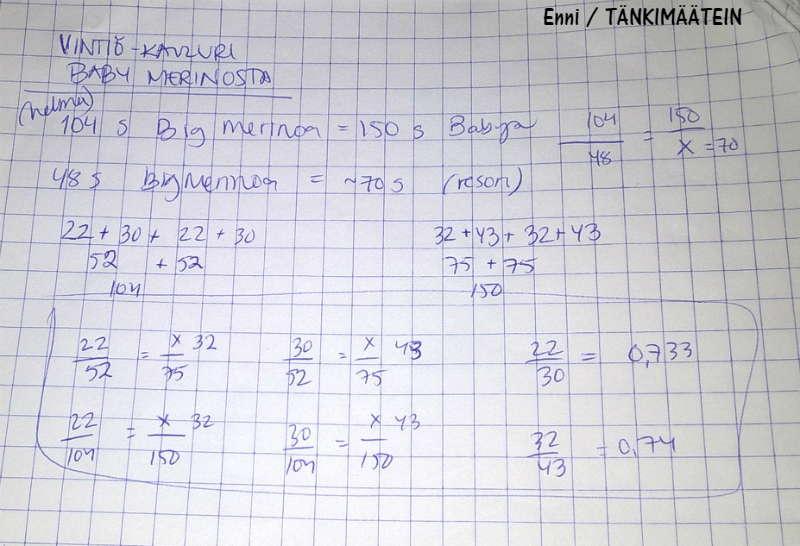 Enni / TÄNKIMÄÄTEIN
VINTIÖ-KAVZURI
BABY MERINOSTA
(helma)
104 s Big merinoa = 150 s Babya
104/48 = 150/x = 70
48 s Big Merinoa = ~70 s (resori)
22 + 30 + 22 + 30
52 + 52
104
32 + 43 + 32 + 43
75 + 75
150
22/52 = x/75 32
30/52 = x/75 43
22/30 = 0,733
22/104 = x/150 32
30/104 = x/150 43
32/43 = 0,74